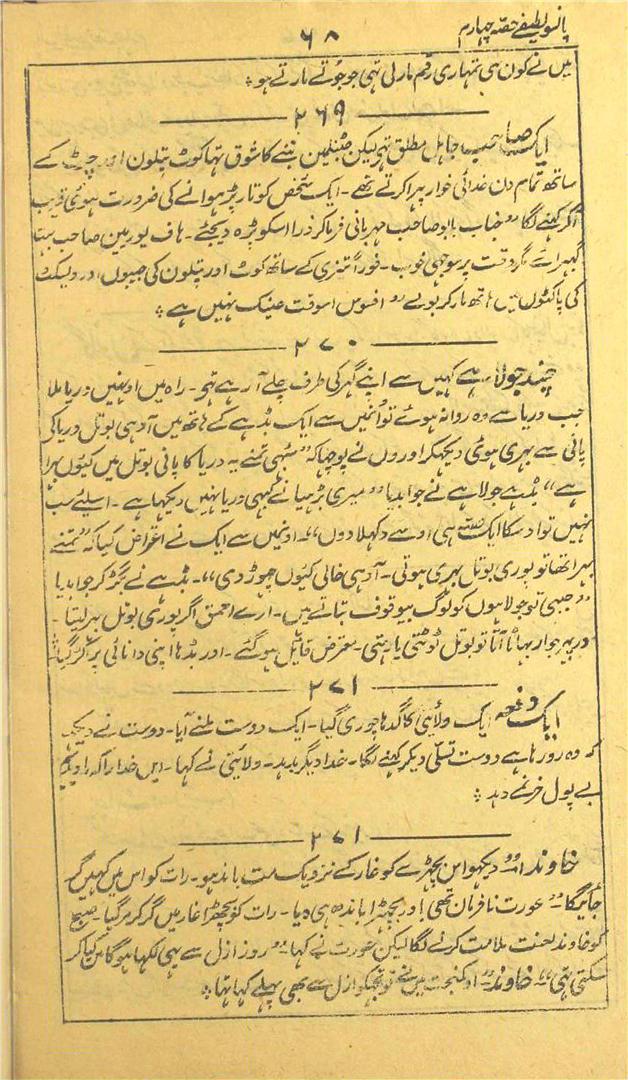 پانسو لطیفے حصہ چہارم
۶۸
میں نے کون ہی تمہاری رقم مار لی تہی جو جوُتے مارتے ہو ؞
۲۶۹
ایک صاحب جاہل مطلق تہے لیکن جنٹلمین بننے کا شوق تہا کوٹ پتلون اور چرٹ کے
ساتھ تمام دن غدائی خوار پہرا کرتے تھے۔ ایک شخص کو تار پڑہوانے کی ضرورت ہوئی قریب
آکر کہنے لگا "جناب بابو صاحب مہربانی فرما کر ذرا اسکو پڑہ دیجئے۔ ہاف یورپین صاحب بہت
گہبرائے مگر وقت پر سوجہی خوب۔ فوراً تیزی کے ساتھ کوٹ اور پتلون کی جیبوں اور ویسکٹ
کی پاکٹوں میں ہاتھ مار کر بولے "افسوس اسوقت عینک نہیں ہے ؞
۲۷۰
چند جولاہے کہیں سے اپنے گہر کی طرف چلے آ رہے تہے۔ راہ میں اونہیں دریا ملا
جب دریا سے وہ روانہ ہوئے تو انمیں سے ایک بڈہے کے ہاتھ میں آدہی بوتل دریا کی
پانی سے بہری ہوئی دیکہکر اوروں نے پوچہا کہ "بہئی تمنے یہ دریا کا پانی بوتل میں کیوں بہرا
ہے" بڈہے جولاہے نے جوابدیا "میری بڑہیا نے کبہی دریا نہیں دیکہا ہے۔ اسلیئے سب
نہیں تو اوسکا ایک حصہ ہی اوسے دکہلا دوں"۔ اونمیں سے ایک نے اعتراض کیا کہ "تمنے
بہرا تھا تو پوری بوتل بہری ہوتی۔ آدہی خالی کیوں چہوڑ دی"۔ بڈہے نے بگڑ کر جوابدیا
"جبہی تو جولاہوں کو لوگ بیوقوف بتاتے ہیں۔ ارے احمق اگر پوری بوتل بہر لیتا۔
اور پہر جوار بہاٹا آتا تو بوتل ٹوٹتی یا رہتی۔ معترض قایل ہو گئے۔ اور بڈہا اپنی دانائی پر اکڑ گیا ؞
۲۷۱
ایک دفعہ ایک ولائیتی کا گدہا چوری گیا۔ ایک دوست ملنے آیا۔ دوست نے دیکہا
کہ وہ رو رہا ہے دوست تسلّی دیکر کہنے لگا۔ خدا دیگر بدہد۔ ولائیتی نے کہا۔ ایں خدا را کہ
بے پول خر نمے دہد ؞
۲۷۱
خاوند "۔ دیکہو اس بچہڑے کو غار کے نزدیک مت باندہو۔ رات کو اس میں کہیں گر
جائیگا"۔ عورت نافرمان تھی اور بچہڑا باندھ ہی دیا۔ رات کو بچھڑا غار میں گر کر مر گیا۔ صبح
کو خاوند لعنت ملامت کرنے لگا لیکن عورت نے کہا۔ "روز ازل سے یہی لکہا ہوگا میں کیا کر
سکتی تہی"۔ خاوند۔ "او کنجت میں نے تو تجہکو ازل سے بھی پہلے کہا تہا ؞